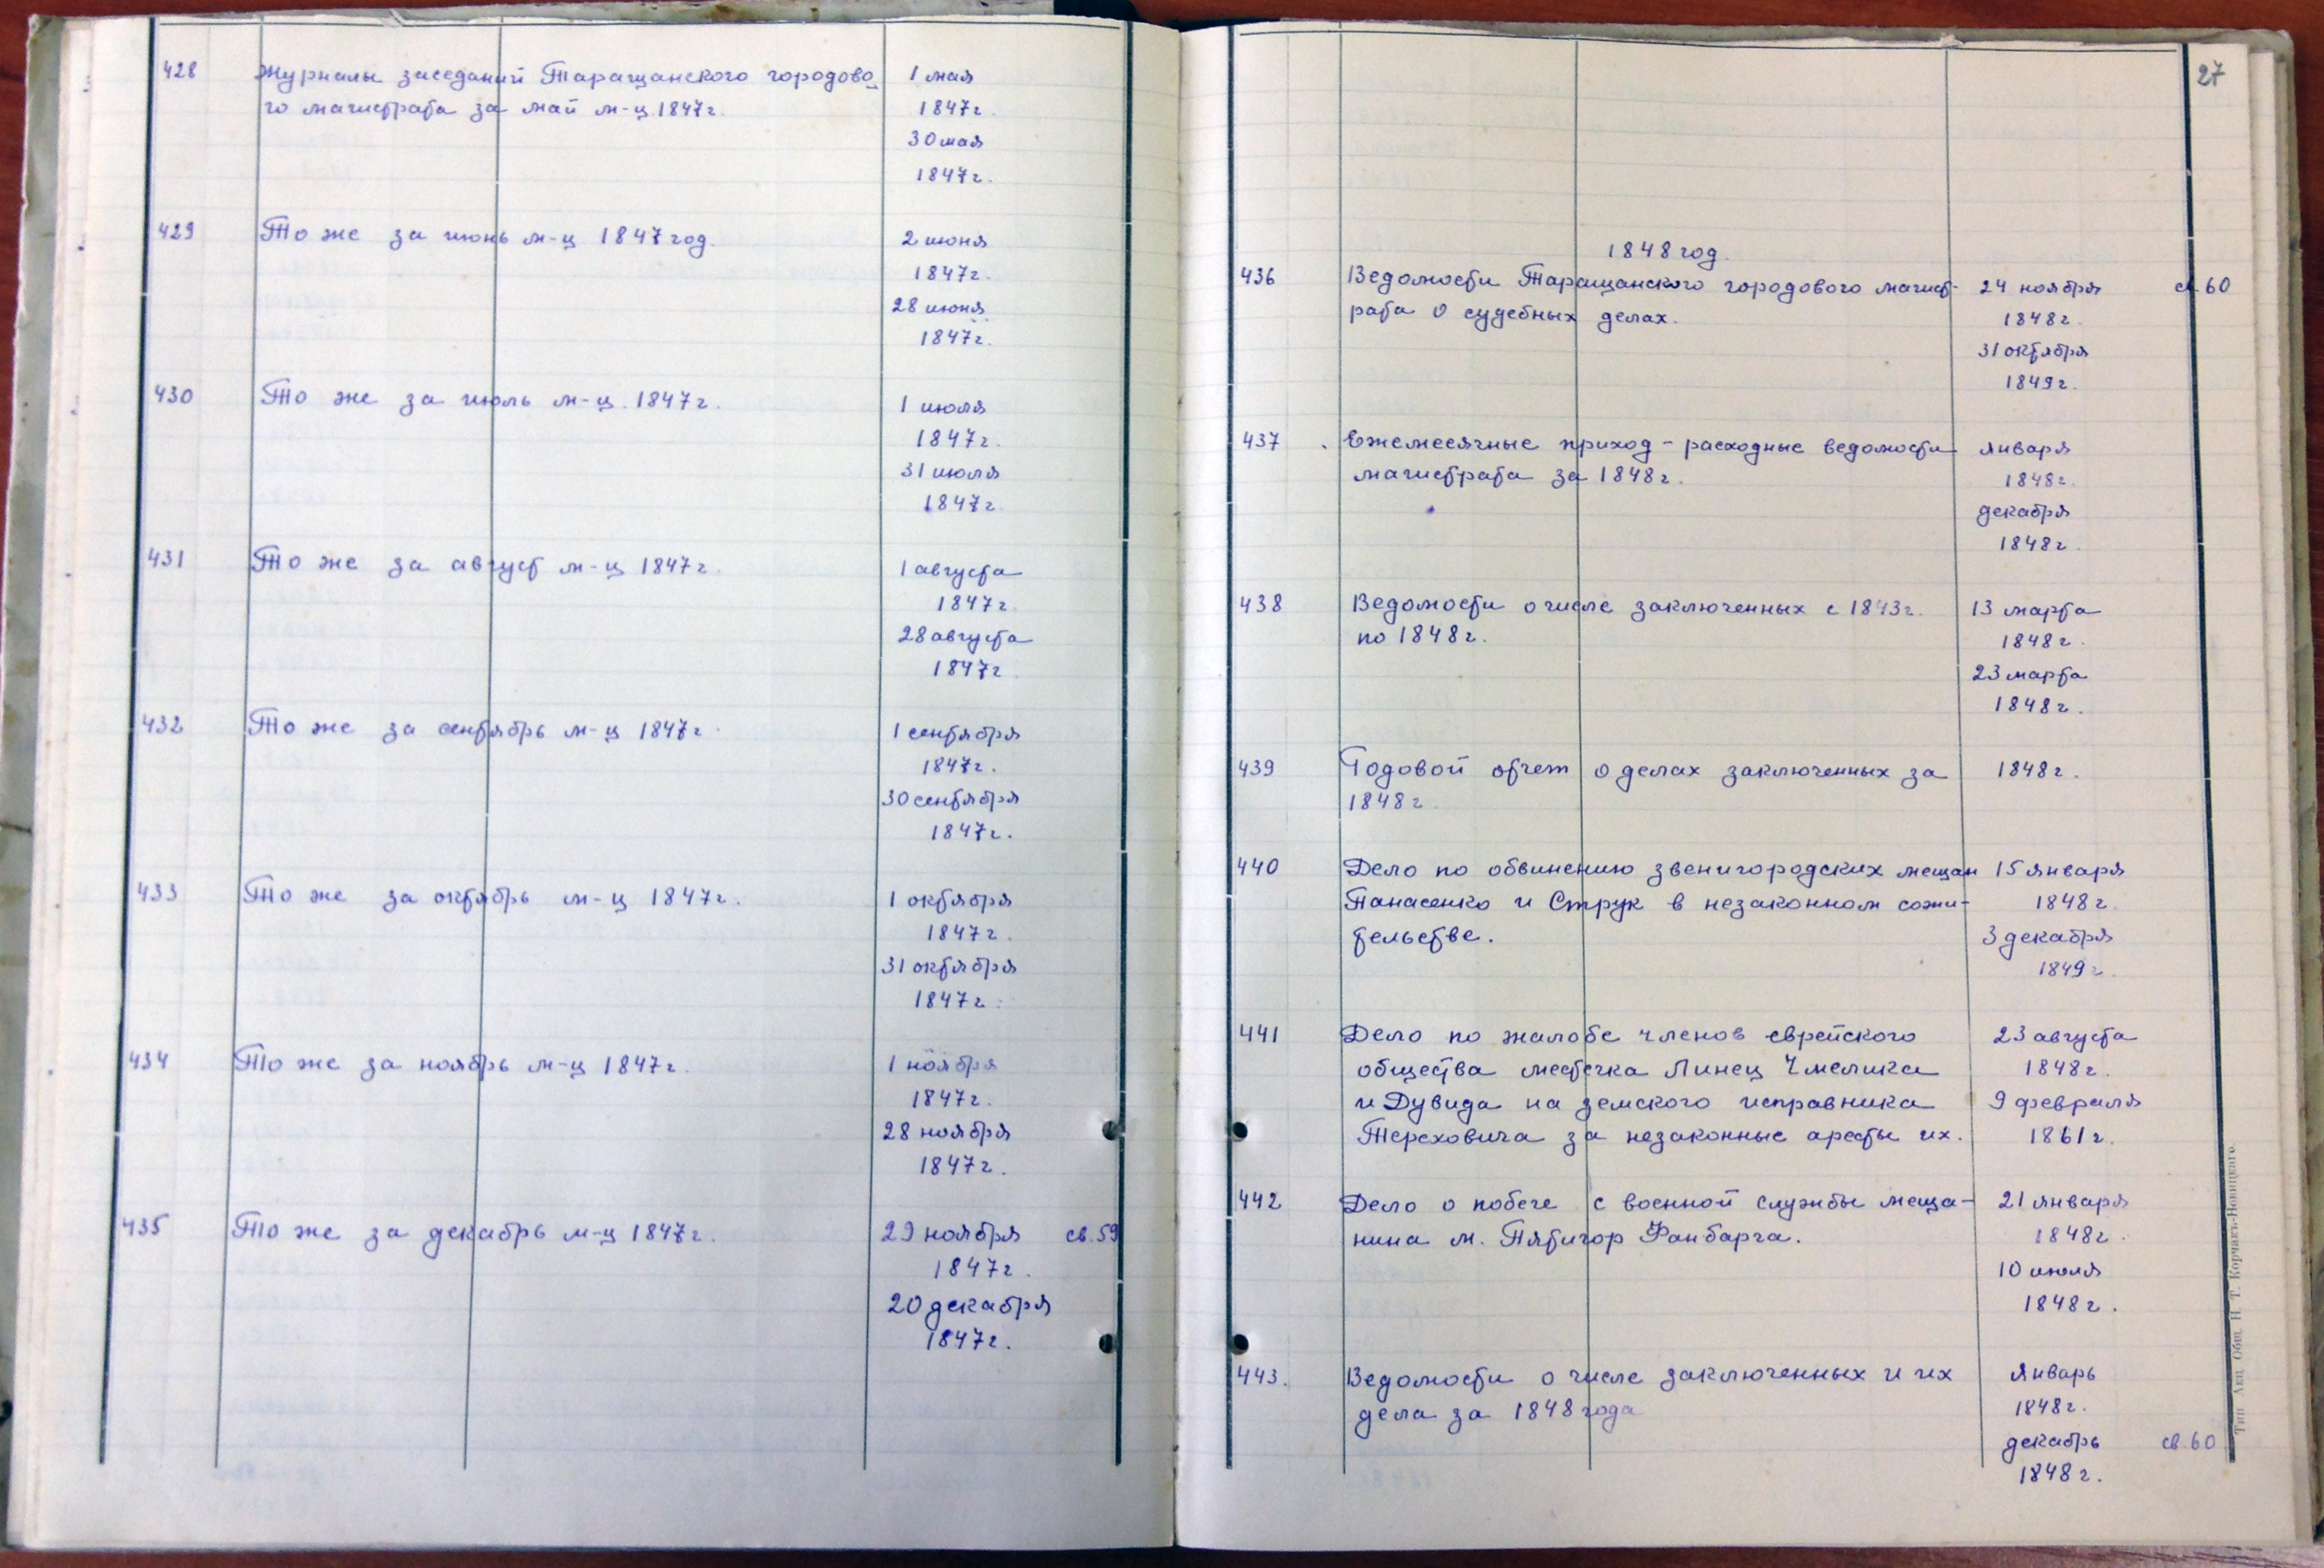 428 Журналы заседаний Таращанского городово- 1 мая
го магистрата за май м-ц 1847г. 1847г.
30 мая
1847г.
429 То же за июнь м-ц 1847 год. 2 июня
1847г.
28 июня
1847г.
430 То же за июль м-ц. 1847г. 1 июля
1847г.
31 июля
1847г.
431 То же за август м-ц 1847г. 1 августа
1847г.
28 августа
1847г
432 То же за сентябрь м-ц 1847г. 1 сентября
1847г.
30 сентября
1847г.
433 То же за октябрь м-ц 1847г. 1 октября
1847г.
31 октября
1847г.
434 То же за ноябрь м-ц 1847г. 1 ноября
1847г.
28 ноября
1847г.
435 То же за декабрь м-ц 1847г. 29 ноября св. 59
1847г.
20 декабря
1847г.
27
1848 год.
436 Ведомости Таращанского городового магист- 24 ноября св. 60
рата о судебных делах. 1848г.
31 октября
1849г.
437 Ежемесячные приход-расходные ведомости января
магистрата за 1848г. 1848г.
декабря
1848г.
438 Ведомости о числе заключенных с 1843г. 13 марта
по 1848г. 1848г.
23 марта
1848г.
439 Годовой отчет о делах заключенных за 1848г.
1848г.
440 Дело по обвинению звенигородских мещан 15 января
Панасенко и Струк в незаконном сожи- 1848г
тельстве. 3 декабря
1849г.
441 Дело по жалобе членов еврейского 23 августа
общества местечка Линец Чмелика 1848г.
и Дувида на земского исправника 9 февраля
Тереховича за незаконные аресты их. 1861г.
442 Дело о побеге с военной службы меща- 21 января
нина м. Пятигор Фанбарга. 1848г.
10 июля
1848г.
443. Ведомости о числе заключенных и их январь
дела за 1848 года 1848г.
декабрь св. 60
1848г.
Тип. Акц. Общ. Н. Т. Корчакъ-Новицкаго.